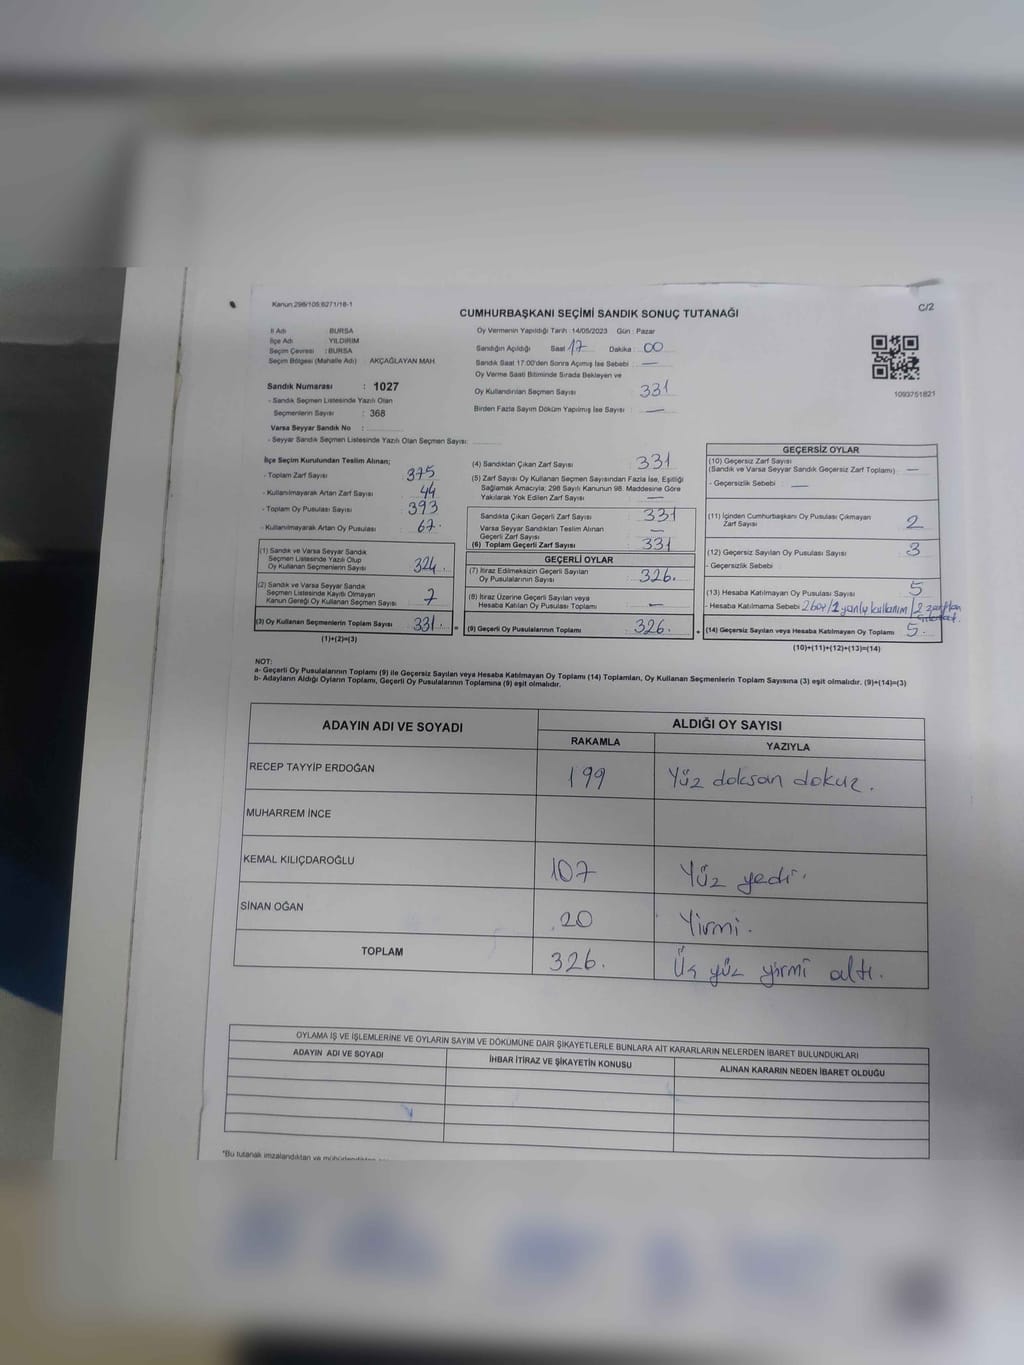 Kanun:298/105:6271/18-1
C/2
CUMHURBAŞKANI SEÇİMİ SANDIK SONUÇ TUTANAĞI
İl Adı : BURSA
İlçe Adı : YILDIRIM
Seçim Çevresi : BURSA
Seçim Bölgesi (Mahalle Adı) : AKÇAĞLAYAN MAH.
Sandık Numarası : 1027
- Sandık Seçmen Listesinde Yazılı Olan
Seçmenlerin Sayısı : 368
Varsa Seyyar Sandık No :
- Seyyar Sandık Seçmen Listesinde Yazılı Olan Seçmen Sayısı:
Oy Vermenin Yapıldığı Tarih : 14/05/2023 Gün : Pazar
Sandığın Açıldığı Saat 17 Dakika : 00
Sandık Saat 17.00'den Sonra Açılmış İse Sebebi : —
Oy Verme Saati Bitiminde Sırada Bekleyen ve
Oy Kullandırılan Seçmen Sayısı : 331
Birden Fazla Sayım Döküm Yapılmış İse Sayısı : —
1093751821
İlçe Seçim Kurulundan Teslim Alınan;
- Toplam Zarf Sayısı : 375
- Kullanılmayarak Artan Zarf Sayısı : 44
- Toplam Oy Pusulası Sayısı : 393
- Kullanılmayarak Artan Oy Pusulası : 67.
(1) Sandık ve Varsa Seyyar Sandık
Seçmen Listesinde Yazılı Olup
Oy Kullanan Seçmenlerin Sayısı : 324.
(2) Sandık ve Varsa Seyyar Sandık
Seçmen Listesinde Kayıtlı Olmayan
Kanun Gereği Oy Kullanan Seçmen Sayısı : 7
(3) Oy Kullanan Seçmenlerin Toplam Sayısı : 331.
(1)+(2)=(3)
(4) Sandıktan Çıkan Zarf Sayısı : 331
(5) Zarf Sayısı Oy Kullanan Seçmen Sayısından Fazla İse, Eşitliği
Sağlamak Amacıyla; 298 Sayılı Kanunun 98. Maddesine Göre
Yakılarak Yok Edilen Zarf Sayısı : —
Sandıkta Çıkan Geçerli Zarf Sayısı : 331
Varsa Seyyar Sandıktan Teslim Alınan
Geçerli Zarf Sayısı : —
(6) Toplam Geçerli Zarf Sayısı : 331
GEÇERLİ OYLAR
(7) İtiraz Edilmeksizin Geçerli Sayılan
Oy Pusulalarının Sayısı : 326.
(8) İtiraz Üzerine Geçerli Sayılan veya
Hesaba Katılan Oy Pusulası Toplamı : —
= (9) Geçerli Oy Pusulalarının Toplamı : 326.
GEÇERSİZ OYLAR
(10) Geçersiz Zarf Sayısı
(Sandık ve Varsa Seyyar Sandık Geçersiz Zarf Toplamı) : —
- Geçersizlik Sebebi : —
(11) İçinden Cumhurbaşkanı Oy Pusulası Çıkmayan
Zarf Sayısı : 2
(12) Geçersiz Sayılan Oy Pusulası Sayısı : 3
- Geçersizlik Sebebi :
(13) Hesaba Katılmayan Oy Pusulası Sayısı : 5
- Hesaba Katılmama Sebebi : yanlış kullanım
+ (14) Geçersiz Sayılan veya Hesaba Katılmayan Oy Toplamı : 5.
(10)+(11)+(12)+(13)=(14)
NOT:
a- Geçerli Oy Pusulalarının Toplamı (9) ile Geçersiz Sayılan veya Hesaba Katılmayan Oy Toplamı (14) Toplamları, Oy Kullanan Seçmenlerin Toplam Sayısına (3) eşit olmalıdır. (9)+(14)=(3)
b- Adayların Aldığı Oyların Toplamı, Geçerli Oy Pusulalarının Toplamına (9) eşit olmalıdır.
ADAYIN ADI VE SOYADI ALDIĞI OY SAYISI
RAKAMLA YAZIYLA
RECEP TAYYİP ERDOĞAN 199 Yüz doksan dokuz.
MUHARREM İNCE
KEMAL KILIÇDAROĞLU 107 Yüz yedi.
SİNAN OĞAN 20 Yirmi.
TOPLAM 326. Üç yüz yirmi altı.
OYLAMA İŞ VE İŞLEMLERİNE VE OYLARIN SAYIM VE DÖKÜMÜNE DAİR ŞİKAYETLERLE BUNLARA AİT KARARLARIN NELERDEN İBARET BULUNDUKLARI
ADAYIN ADI VE SOYADI İHBAR İTİRAZ VE ŞİKAYETİN KONUSU ALINAN KARARIN NEDEN İBARET OLDUĞU
*Bu tutanak imzalandıktan ve